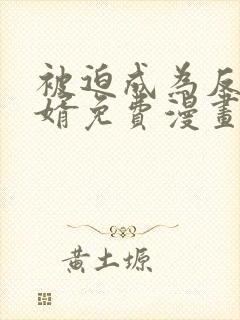 被迫成為反
婿免費漫畫
黃土塬